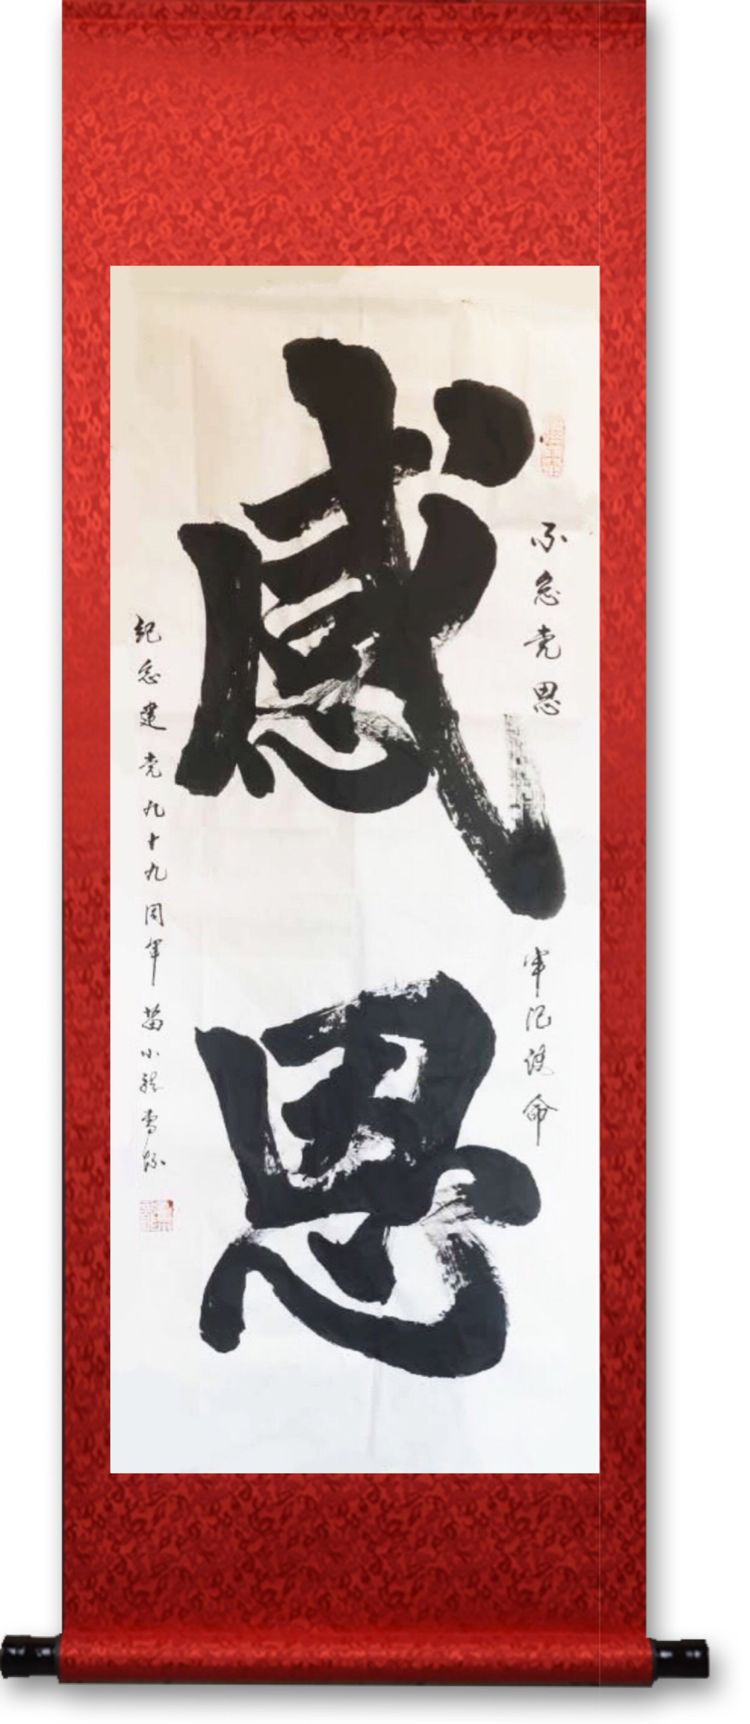 感恩
不忘党恩
牢记使命
纪念建党九十九周年 苗小龙书